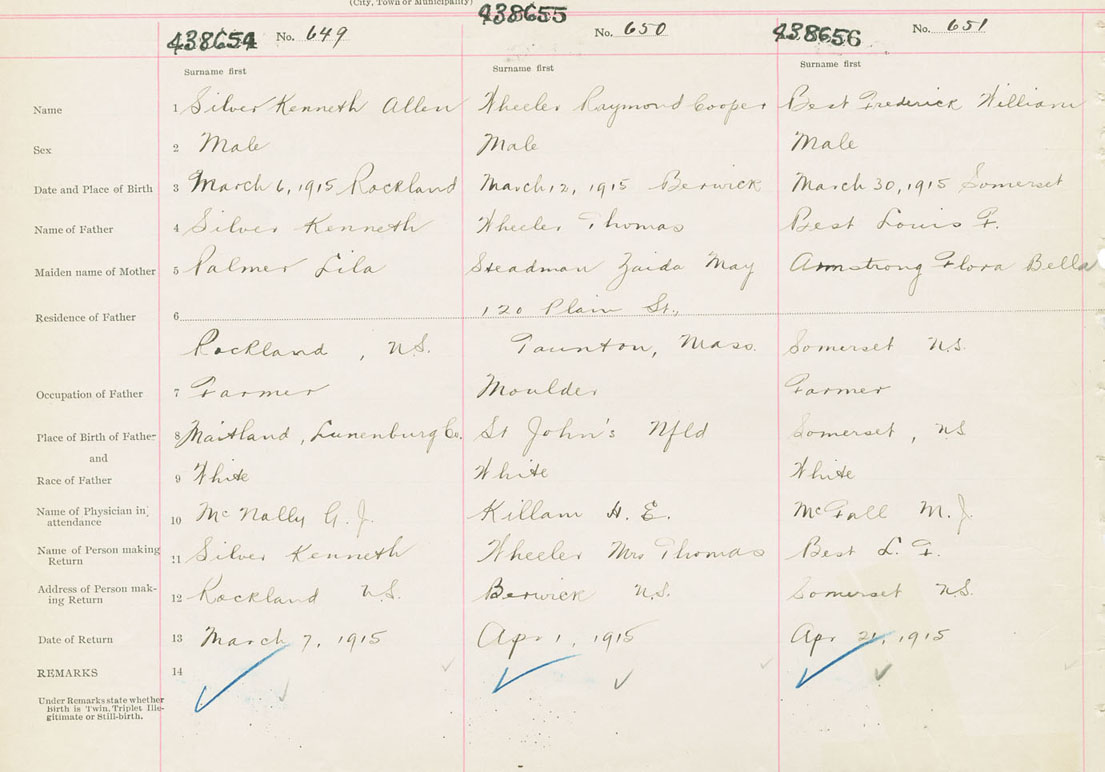 (City, Town or Municipality)
438654 No. 649 438655 No. 650 438656 No. 651
Surname first Surname first Surname first
Name 1 Silver Kenneth Allen Wheeler Raymond Cooper Best Frederick William
Sex 2 Male Male Male
Date and Place of Birth 3 March 6, 1915 Rockland March 12, 1915 Berwick March 30, 1915 Somerset
Name of Father 4 Silver Kenneth Wheeler Thomas Best Louis F.
Maiden name of Mother 5 Palmer Lila Steadman Zaida May Armstrong Flora Bella
Residence of Father 6 120 Plain St.,
Rockland, N.S. Taunton, Mass. Somerset N.S.
Occupation of Father 7 Farmer Moulder Farmer
Place of Birth of Father 8 Maitland, Lunenburg Co. St John's Nfld Somerset, N.S
and
Race of Father 9 White White White
Name of Physician in attendance 10 McNally G. J. Killam H. E. McFall M. J
Name of Person making Return 11 Silver Kenneth Wheeler Mrs Thomas Best L. F.
Address of Person mak-ing Return 12 Rockland N.S. Berwick N.S. Somerset N.S.
Date of Return 13 March 7, 1915 Apr 1, 1915 Apr 21, 1915
REMARKS 14
Under Remarks state whether
Birth is Twin, Triplet Ille-
gitimate or Still-birth.